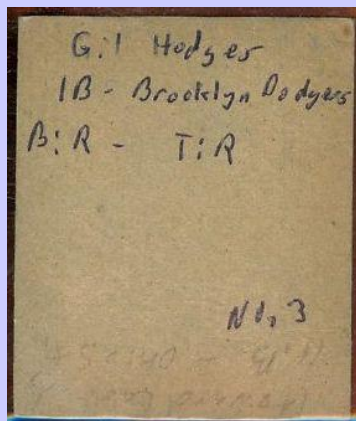 Gil Hodges
1B - Brooklyn Dodgers
B: R - T: R
No. 3